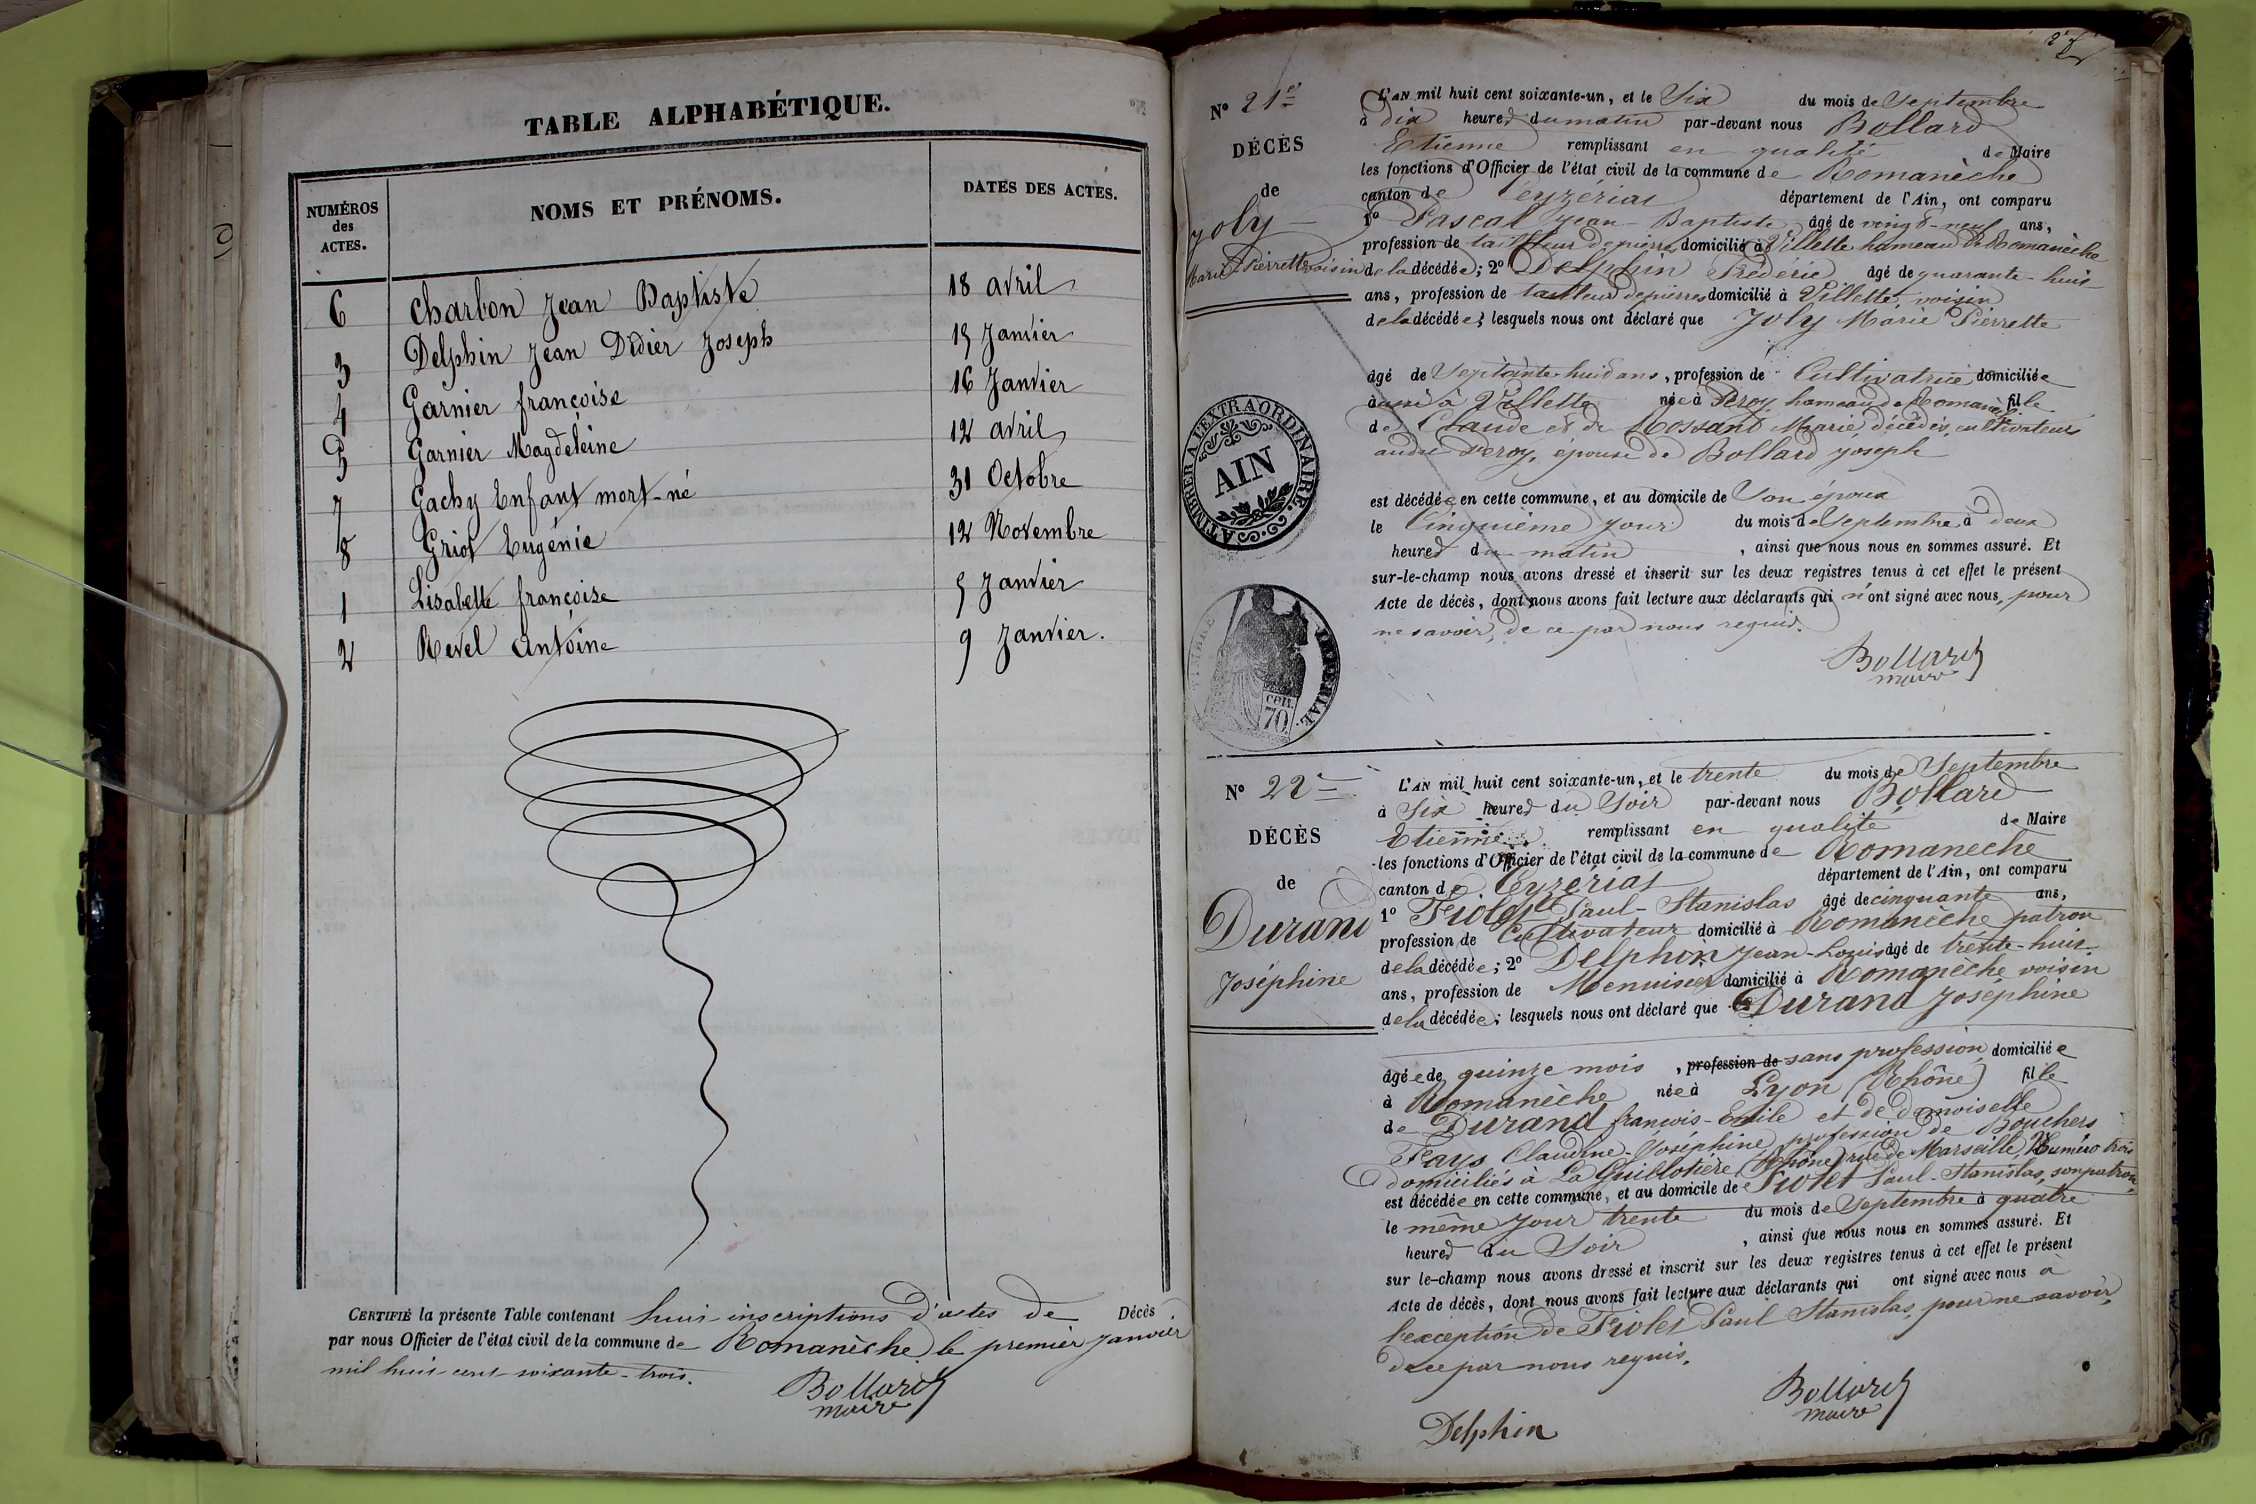 TABLE ALPHABÉTIQUE.
NUMÉROS des ACTES.
NOMS ET PRÉNOMS.
DATES DES ACTES.
6 Charbon Jean Baptiste 18 avril
3 Delphin Jean Didier Joseph 15 Janvier
4 Garnier françoise 16 Janvier
5 Garnier Magdeleine 12 avril
7 Gachy Enfant mort-né 31 Octobre
8 Griot Eugénie 12 Novembre
1 Lisabette françoise 5 Janvier
2 Revel Antoine 9 Janvier.
CERTIFIÉ la présente Table contenant huit inscriptions d'actes de Décès
par nous Officier de l'état civil de la commune de Romanèche le premier Janvier
mil huit cent soixante-trois.
Bollard
maire
N° 21e
DÉCÈS
de
Joly
Marie Pierrette
L'AN mil huit cent soixante-un, et le Six du mois de Septembre
à dix heures du matin par-devant nous Bollard
Etienne remplissant en qualité de Maire
les fonctions d'Officier de l'état civil de la commune de Romanèche
canton de Ceyzériat département de l'Ain, ont comparu
1° Pascal Jean-Baptiste âgé de vingt-neuf ans,
profession de tailleur de pierres domicilié à Villette hameau de Romanèche
voisin de la décédée; 2° Delphin Frédéric âgé de quarante-huit
ans, profession de tailleur de pierres domicilié à Villette, voisin
de la décédée; lesquels nous ont déclaré que Joly Marie Pierrette
âgé de Septante-huit ans, profession de Cultivatrice domiciliée
aussi à Villette née à Peroy, hameau de Romanèche fille
de Claude et de Rossand Marie décédés, cultivateurs
audit Peroy, épouse de Bollard Joseph
est décédée en cette commune, et au domicile de Son époux
le Cinquième jour du mois de Septembre à deux
heures du matin, ainsi que nous nous en sommes assuré. Et
sur-le-champ nous avons dressé et inscrit sur les deux registres tenus à cet effet le présent
Acte de décès, dont nous avons fait lecture aux déclarants qui n'ont signé avec nous, pour
ne savoir, de ce par nous requis.
Bollard
maire
A TIMBRER A L'EXTRAORDINAIRE.
AIN
TIMBRE IMPERIAL.
cen. 70.
N° 22e
DÉCÈS
de
Durand
Joséphine
L'AN mil huit cent soixante-un, et le trente du mois de Septembre
à Six heures du Soir par-devant nous Bollard
Etienne remplissant en qualité de Maire
les fonctions d'Officier de l'état civil de la commune de Romanèche
canton de Ceyzériat département de l'Ain, ont comparu
1° Fiolet Paul-Stanislas âgé de cinquante ans,
profession de Cultivateur domicilié à Romanèche patron
de la décédée; 2° Delphin Jean-Louis âgé de trente-huit
ans, profession de Menuisier domicilié à Romanèche voisin
de la décédée; lesquels nous ont déclaré que Durand Joséphine
âgée de quinze mois, profession de sans profession domiciliée
à Romanèche née à Lyon (Rhône) fille
de Durand françois-Emile et de demoiselle
Fays Claudine-Joséphine profession de Bouchers
domiciliés à La Guillotière (Rhône) rue de Marseille, Numéro trois
est décédée en cette commune, et au domicile de Fiolet Paul-Stanislas, son patron,
le même jour trente du mois de Septembre à quatre
heures du Soir, ainsi que nous nous en sommes assuré. Et
sur le-champ nous avons dressé et inscrit sur les deux registres tenus à cet effet le présent
Acte de décès, dont nous avons fait lecture aux déclarants qui ont signé avec nous à
l'exception de Fiolet Paul Stanislas, pour ne savoir,
de ce par nous requis.
Bollard
maire
Delphin